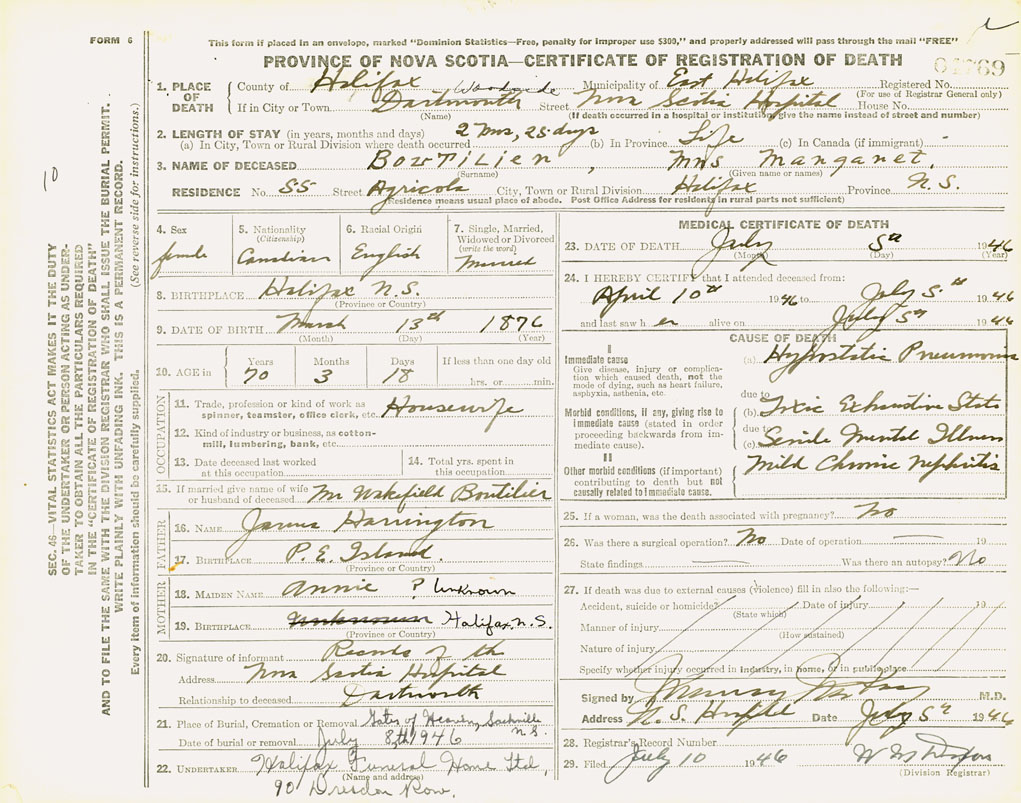 FORM 6
This form if placed in an envelope, marked "Dominion Statistics—Free, penalty for improper use $300," and properly addressed will pass through the mail "FREE"
PROVINCE OF NOVA SCOTIA—CERTIFICATE OF REGISTRATION OF DEATH
1. PLACE OF DEATH County of Halifax Woodside Municipality of East Halifax Registered No.
(For use of Registrar General only)
If in City or Town Dartmouth Street Nova Scotia Hospital House No.
(Name) (If death occurred in a hospital or institution, give the name instead of street and number)
2. LENGTH OF STAY (in years, months and days) 2 Mos, 25 days Life
(a) In City, Town or Rural Division where death occurred (b) In Province (c) In Canada (if immigrant)
3. NAME OF DECEASED BOUTILIER, Mrs Margaret.
(Surname) (Given name or names)
RESIDENCE No. 55 Street Agricola City, Town or Rural Division Halifax Province N.S.
(Residence means usual place of abode. Post Office Address for residents in rural parts not sufficient)
4. Sex female
5. Nationality (Citizenship) Canadian
6. Racial Origin English
7. Single, Married, Widowed or Divorced (write the word) Married
8. BIRTHPLACE Halifax N.S.
(Province or Country)
9. DATE OF BIRTH March 13th 1876
(Month) (Day) (Year)
10. AGE in Years 70 Months 3 Days 18 If less than one day old hrs. or min.
OCCUPATION
11. Trade, profession or kind of work as spinner, teamster, office clerk, etc. Housewife
12. Kind of industry or business, as cotton-mill, lumbering, bank, etc.
13. Date deceased last worked at this occupation
14. Total yrs. spent in this occupation
15. If married give name of wife or husband of deceased Mr Wakefield Boutilier
FATHER
16. NAME James Harrington
17. BIRTHPLACE P.E. Island.
(Province or Country)
MOTHER
18. MAIDEN NAME Annie ? Unknown
19. BIRTHPLACE Unknown Halifax, N.S.
(Province or Country)
20. Signature of informant Records of the
Address Nova Scotia Hospital
Relationship to deceased Dartmouth
21. Place of Burial, Cremation or Removal Gates of Heaven, Sackville N.S.
Date of burial or removal July 8th 1946
22. UNDERTAKER Halifax Funeral Home Ltd,
(Name and address)
90 Dresden Row.
MEDICAL CERTIFICATE OF DEATH
23. DATE OF DEATH July 5th 1946
(Month) (Day) (Year)
24. I HEREBY CERTIFY that I attended deceased from:
April 10th 1946 to July 5th 1946
and last saw her alive on July 5th 1946
CAUSE OF DEATH
I
Immediate cause
Give disease, injury or complication which caused death, not the mode of dying, such as heart failure, asphyxia, asthenia, etc.
(a) Hypostatic Pneumonia
due to
Morbid conditions, if any, giving rise to immediate cause (stated in order proceeding backwards from immediate cause).
(b) Toxic Exhaustive State
due to
(c) Senile Mental Illness
II
Other morbid conditions (if important) contributing to death but not causally related to immediate cause.
Mild Chronic Nephritis
25. If a woman, was the death associated with pregnancy? No
26. Was there a surgical operation? No Date of operation — 19
State findings — Was there an autopsy? No
27. If death was due to external causes (violence) fill in also the following:—
Accident, suicide or homicide? Date of injury 19
(State which)
Manner of injury
(How sustained)
Nature of injury
Specify whether injury occurred in industry, in home, or in public place
Signed by M.D.
Address N. S. Hospital Date July 5th 1946
28. Registrar's Record Number
29. Filed July 10 1946
(Division Registrar)
10
SEC. 46—VITAL STATISTICS ACT MAKES IT THE DUTY
OF THE UNDERTAKER OR PERSON ACTING AS UNDER-
TAKER TO OBTAIN ALL THE PARTICULARS REQUIRED
IN THE "CERTIFICATE OF REGISTRATION OF DEATH"
AND TO FILE THE SAME WITH THE DIVISION REGISTRAR WHO SHALL ISSUE THE BURIAL PERMIT.
WRITE PLAINLY WITH UNFADING INK. THIS IS A PERMANENT RECORD.
Every item of information should be carefully supplied. (See reverse side for instructions.)